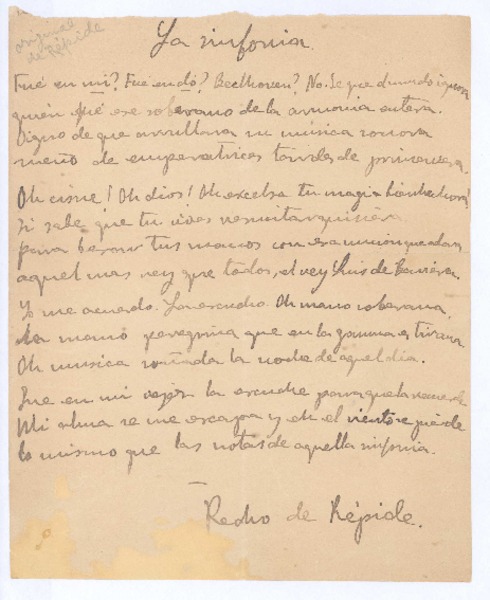 original
de Répide
La sinfonia.
Fué en mi? Fué en dó? Beethoven? No. Se que el mundo ignora
quien fué ese soberano de la armonia entera.
Digno de que arrullara su música sonora
sueño de emperatrices tardes de primavera.
Oh cisne! Oh dios! Oh excelsa tu magia bienhechora!
Si sabe que tu vives resucitar quisiera
para besar tus manos con esa uncion que adora
aquel mas rey que todos, el rey Luis de Baviera.
Yo me acuerdo. La escucho. Oh mano soberana,
La mano peregrina que en la gamma es tirana
Oh musica soñada la noche de aquel dia.
Fue en mi vejez la escuche para que la recuerde
Mi alma se me escapa y en el viento se pierde
lo mismo que las notas de aquella sinfonia.
Pedro de Répide.